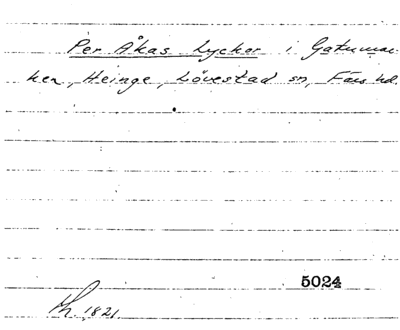 Per Åkas Lycker i Gatumar-
ken, Heinge, Lövestad sn, Färs hd.
5024
1821